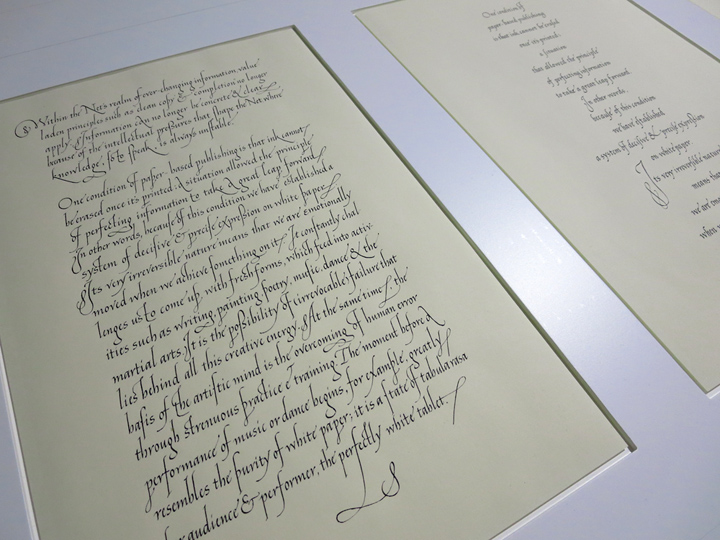 Within the Net's realm of ever-changing information, value
laden principles such as clean copy & completion no longer
apply. Information can no longer be concrete & clear
because of the intellectual pressures that shape the Net where
knowledge, so to speak, is always unstable.
One condition of paper-based publishing is that ink cannot
be erased once it's printed. A situation allowed the principle
of perfecting information to take a great leap forward.
In other words, because of this condition we have established a
system of decisive & precise expression on white paper.
Its very irreversible nature means that we are emotionally
moved when we achieve something on it. It constantly chal
lenges us to come up with fresh forms, which feed into activ-
ities such as writing, painting, poetry, music, dance & the
martial arts. It is the possibility of irrevocable failure that
lies behind all this creative energy. At the same time, the
basis of the artistic mind is the overcoming of human error
through strenuous practice & training. The moment before a
performance of music or dance begins, for example, greatly
resembles the purity of white paper; it is a state of tabula rasa
for audience & performer, the perfectly white tablet.
One condition of
paper based publishing
is that ink cannot be erased
once it's printed;
a situation
then allowed the principle
of perfecting information
to take a great leap forward.
In other words,
because of this condition
we have established
a system of decisive & precise expression
on white paper.
Its very irreversible nature
means that
we are emo
when w